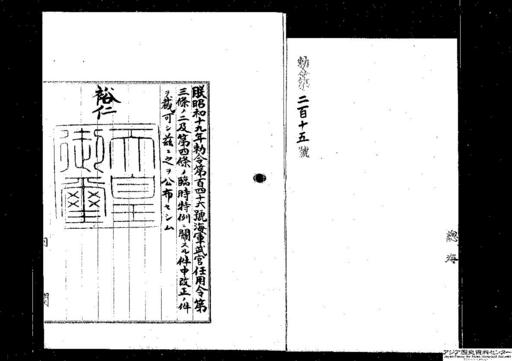 勅令第二百十五號
總海
朕昭和十九年勅令第百四十六號海軍武官任用令第
三條ノ二及第四條ノ臨時特例ニ關スル件中改正ノ件
ヲ裁可シ茲ニ之ヲ公布セシム
裕仁
天皇
御璽
内閣
アジア歴史資料センター